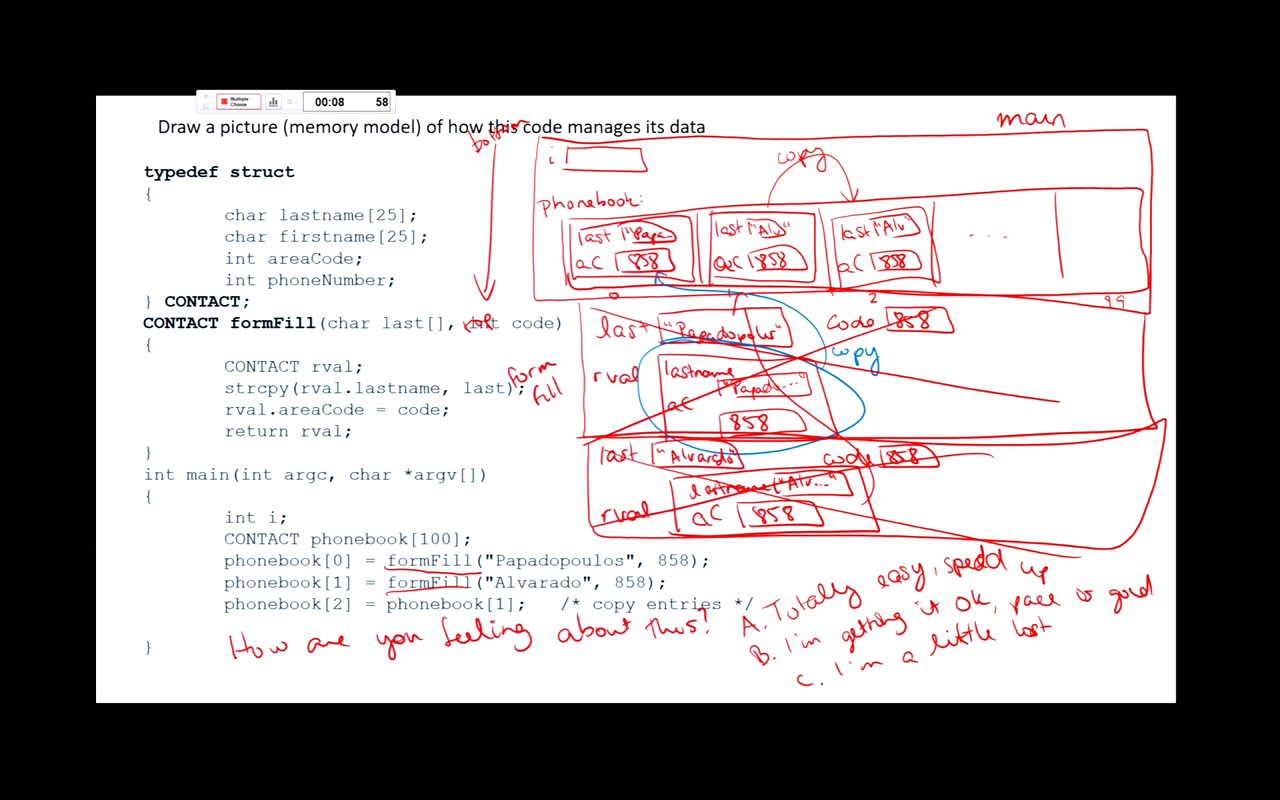 Multiple Choice
00:08 58
Draw a picture (memory model) of how this code manages its data
typedef struct
{
char lastname[25];
char firstname[25];
int areaCode;
int phoneNumber;
} CONTACT;
CONTACT formFill(char last[], int code)
{
CONTACT rval;
strcpy(rval.lastname, last);
rval.areaCode = code;
return rval;
}
int main(int argc, char *argv[])
{
int i;
CONTACT phonebook[100];
phonebook[0] = formFill("Papadopoulos", 858);
phonebook[1] = formFill("Alvarado", 858);
phonebook[2] = phonebook[1]; /* copy entries */
}
bottom
top
form
fill
main
i
copy
phonebook:
last "Papa last "Alv" last "Alv"
....
aC 858 aC 858 aC 858
0 1 2 99
last "Papadopolus" code 858
copy
rval lastname "Papado..."
aC 858
last "Alvarado" code 858
rval lastname "Alv..."
aC 858
How are you feeling about this?
A. Totally easy, spedd up
B. I'm getting it ok, pace is good
C. I'm a little lost